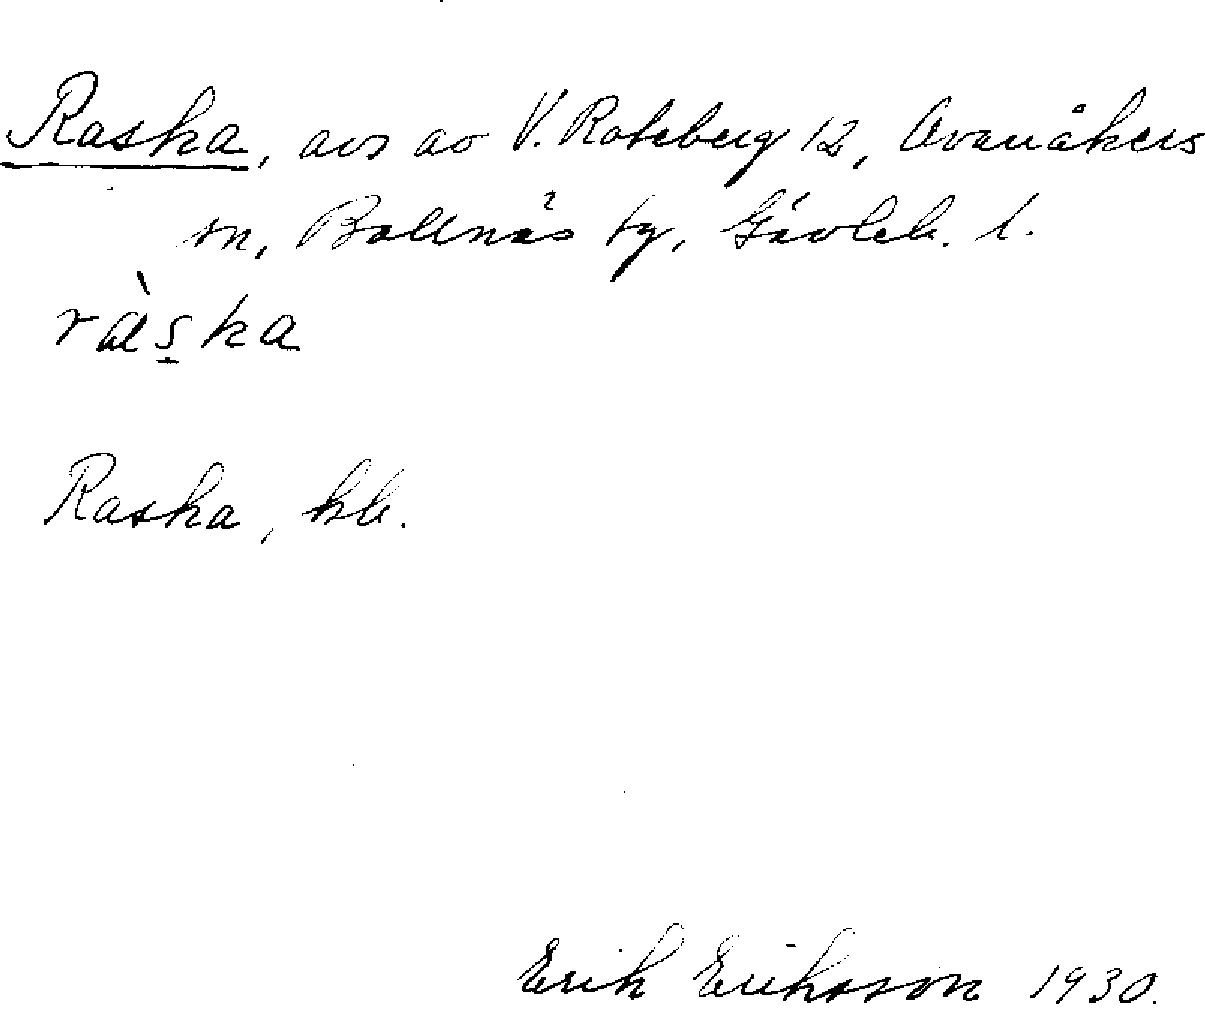 Raska, avs av V. Roteberg 12, Ovanåkers
sn, Bollnäs tg, Gävleb. l.
ràs̲ka
Raska, kb.
Erik Eriksson 1930.